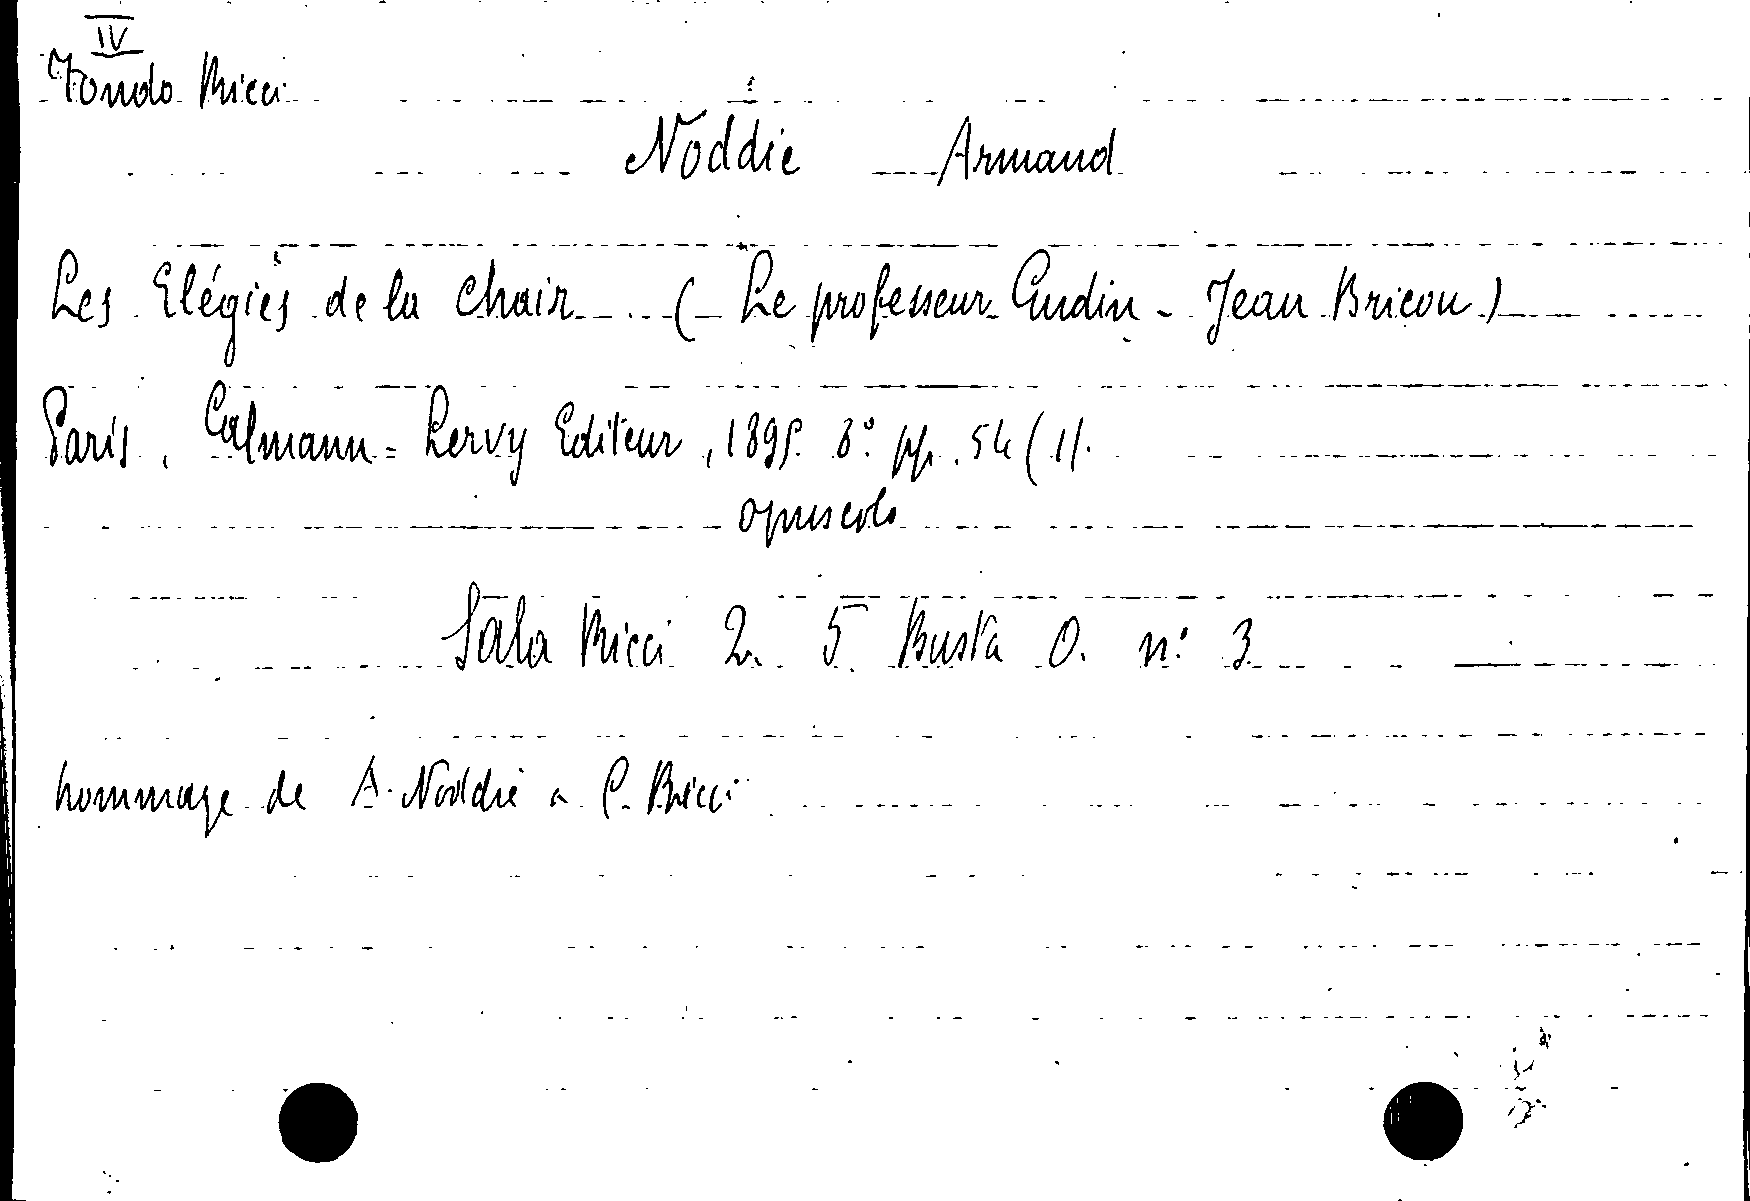 IV
Fondo Ricci
Noddie Armand
Les Elégies de la Chair (Le professeur Gudin - Jean Bricou)
Paris, Calmann = Lervy Editeur, 1895. 8° pp. 54 (1).
opuscolo
Sala Ricci 2. 5 Busta O. n: 3
hommage de A. Noddie a C. Ricci